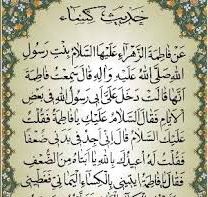 حديث كساء
عَنْ فَاطِمَةَ الزَّهْرَاءِ عَلَيْهَا السَّلَامُ بِنْتِ رَسُولِ
اللهِ صَلَّى اللهُ عَلَيْهِ وَآلِهِ قَالَ سَمِعْتُ فَاطِمَةَ
أَنَّهَا قَالَتْ دَخَلَ عَلَيَّ أَبِي رَسُولُ اللهِ فِي بَعْضِ
الْأَيَّامِ فَقَالَ السَّلَامُ عَلَيْكِ يَا فَاطِمَةُ فَقُلْتُ
عَلَيْكَ السَّلَامُ قَالَ إِنِّي أَجِدُ فِي بَدَنِي ضُعْفًا
فَقُلْتُ لَهُ أُعِيذُكَ بِاللهِ يَا أَبَتَاهُ مِنَ الضُّعْفِ
فَقَالَ يَا فَاطِمَةُ ايتِينِي بِالْكِسَاءِ الْيَمَانِي فَغَطِّينِي